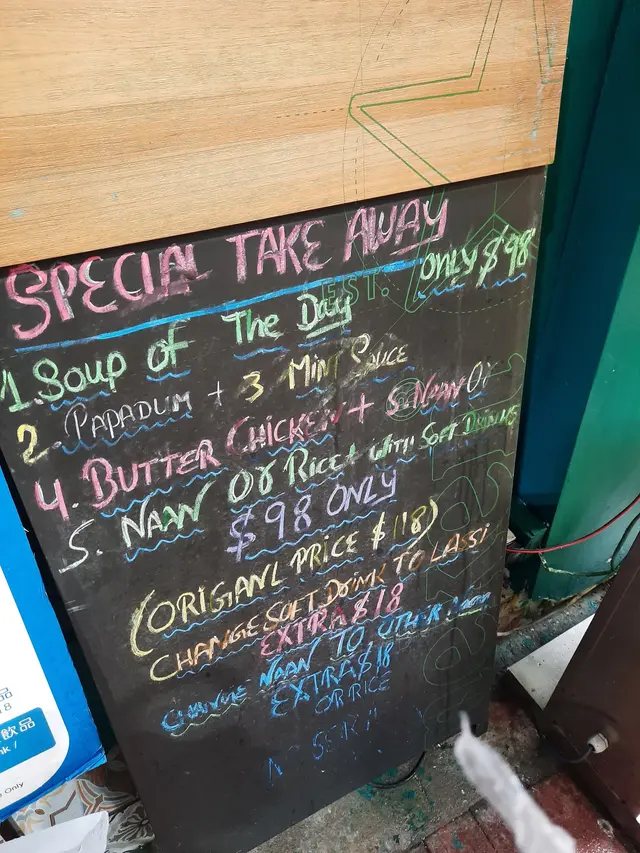 SPECIAL TAKE AWAY
ONLY $98
1. Soup of The Day
2. PAPADUM + 3 MINT SAUCE
4. BUTTER CHICKEN + 5. NAAN Or
5. NAAN Or RICE + WITH SOFT DRINKS
$98 ONLY
(ORIGIANL PRICE $118)
CHANGE SOFT DRINK TO LASSI
EXTRA $18
CHANGE NAAN TO OTHER
EXTRA $18
OR RICE
EST.
品
飲品
Only